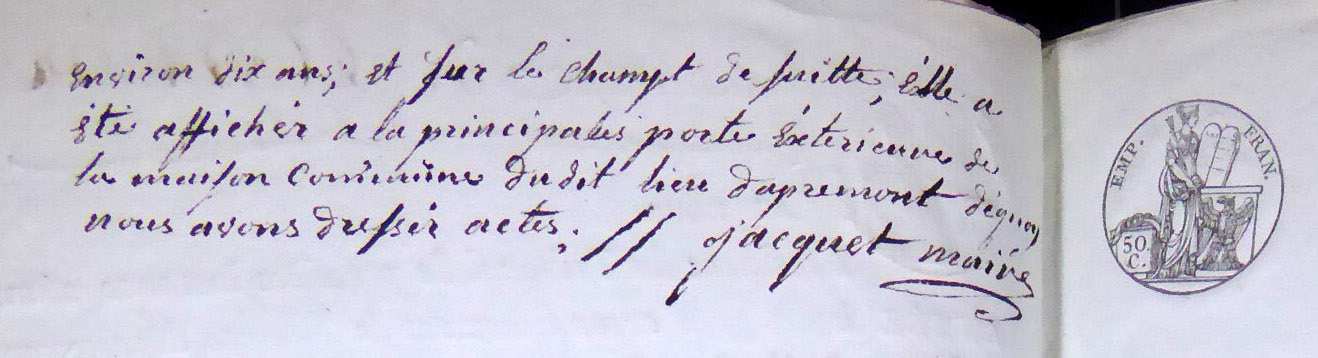 environ dix ans; et sur le champt de suitte; éllé a
été affichér a la principales porte éxterieure de
la maison Commune dudit lieu dapremont déquoy
nous avons dressér actes. // jacquet maire
EMP. FRAN
50
C.